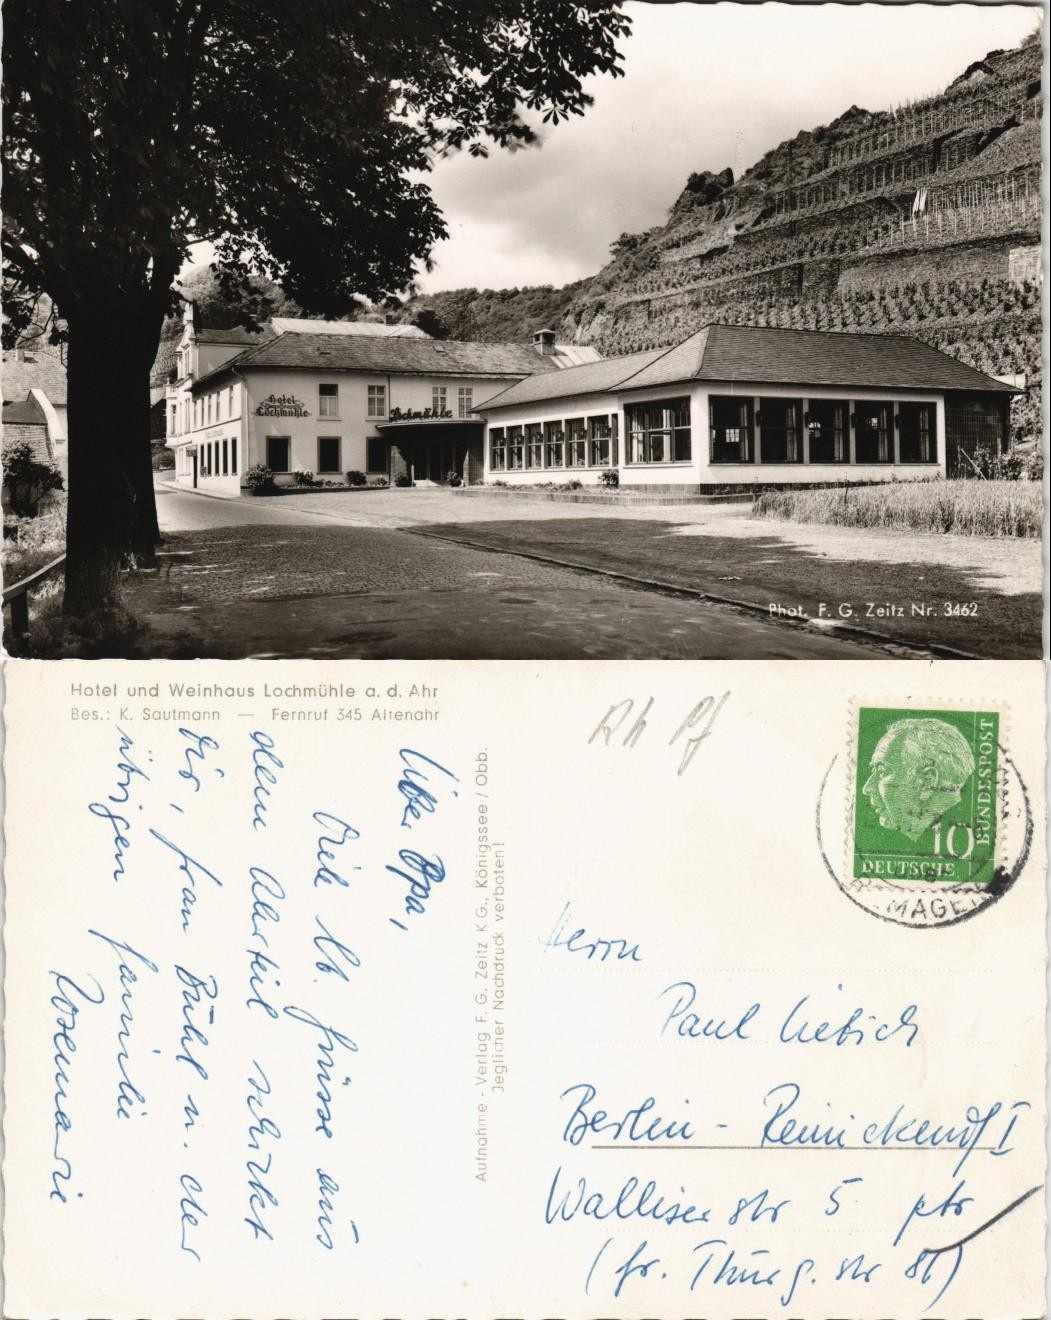 Hotel
Lochmühle
Lochmühle
Phot. F. G. Zeitz Nr. 3462
Hotel und Weinhaus Lochmühle a. d. Ahr
Bes.: K. Sautmann — Fernruf 345 Altenahr
Rh Pf
DEUTSCHE
BUNDESPOST
10
MAGEN
Aufnahme - Verlag F. G. Zeitz K G., Königssee / Obb.
Jeglicher Nachdruck verboten!
Lieber Opa,
Viele lb. Grüsse aus
dem Ahrteil schickt
Dir, Frau Bühl u. der
übrigen Familie
Rosemarie
Herrn
Paul Liebich
Berlin - Reinickendf I
Walliser str 5 ptr
(fr. Thürg. str 81)